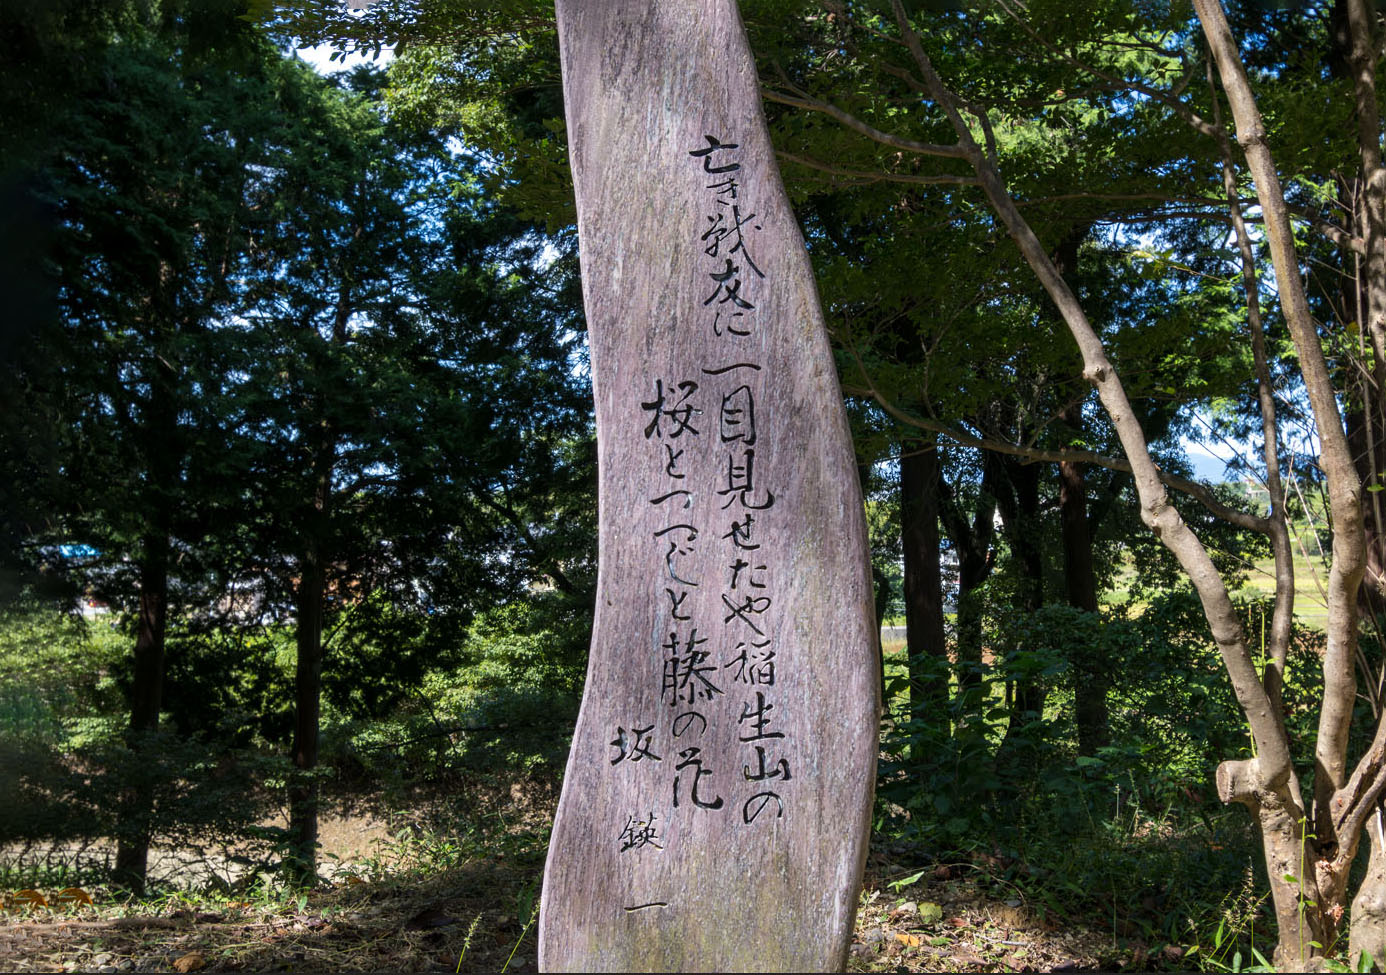 亡き戦友に一目見せたや稲生山の
桜とつつじと藤の花
坂 鍈一